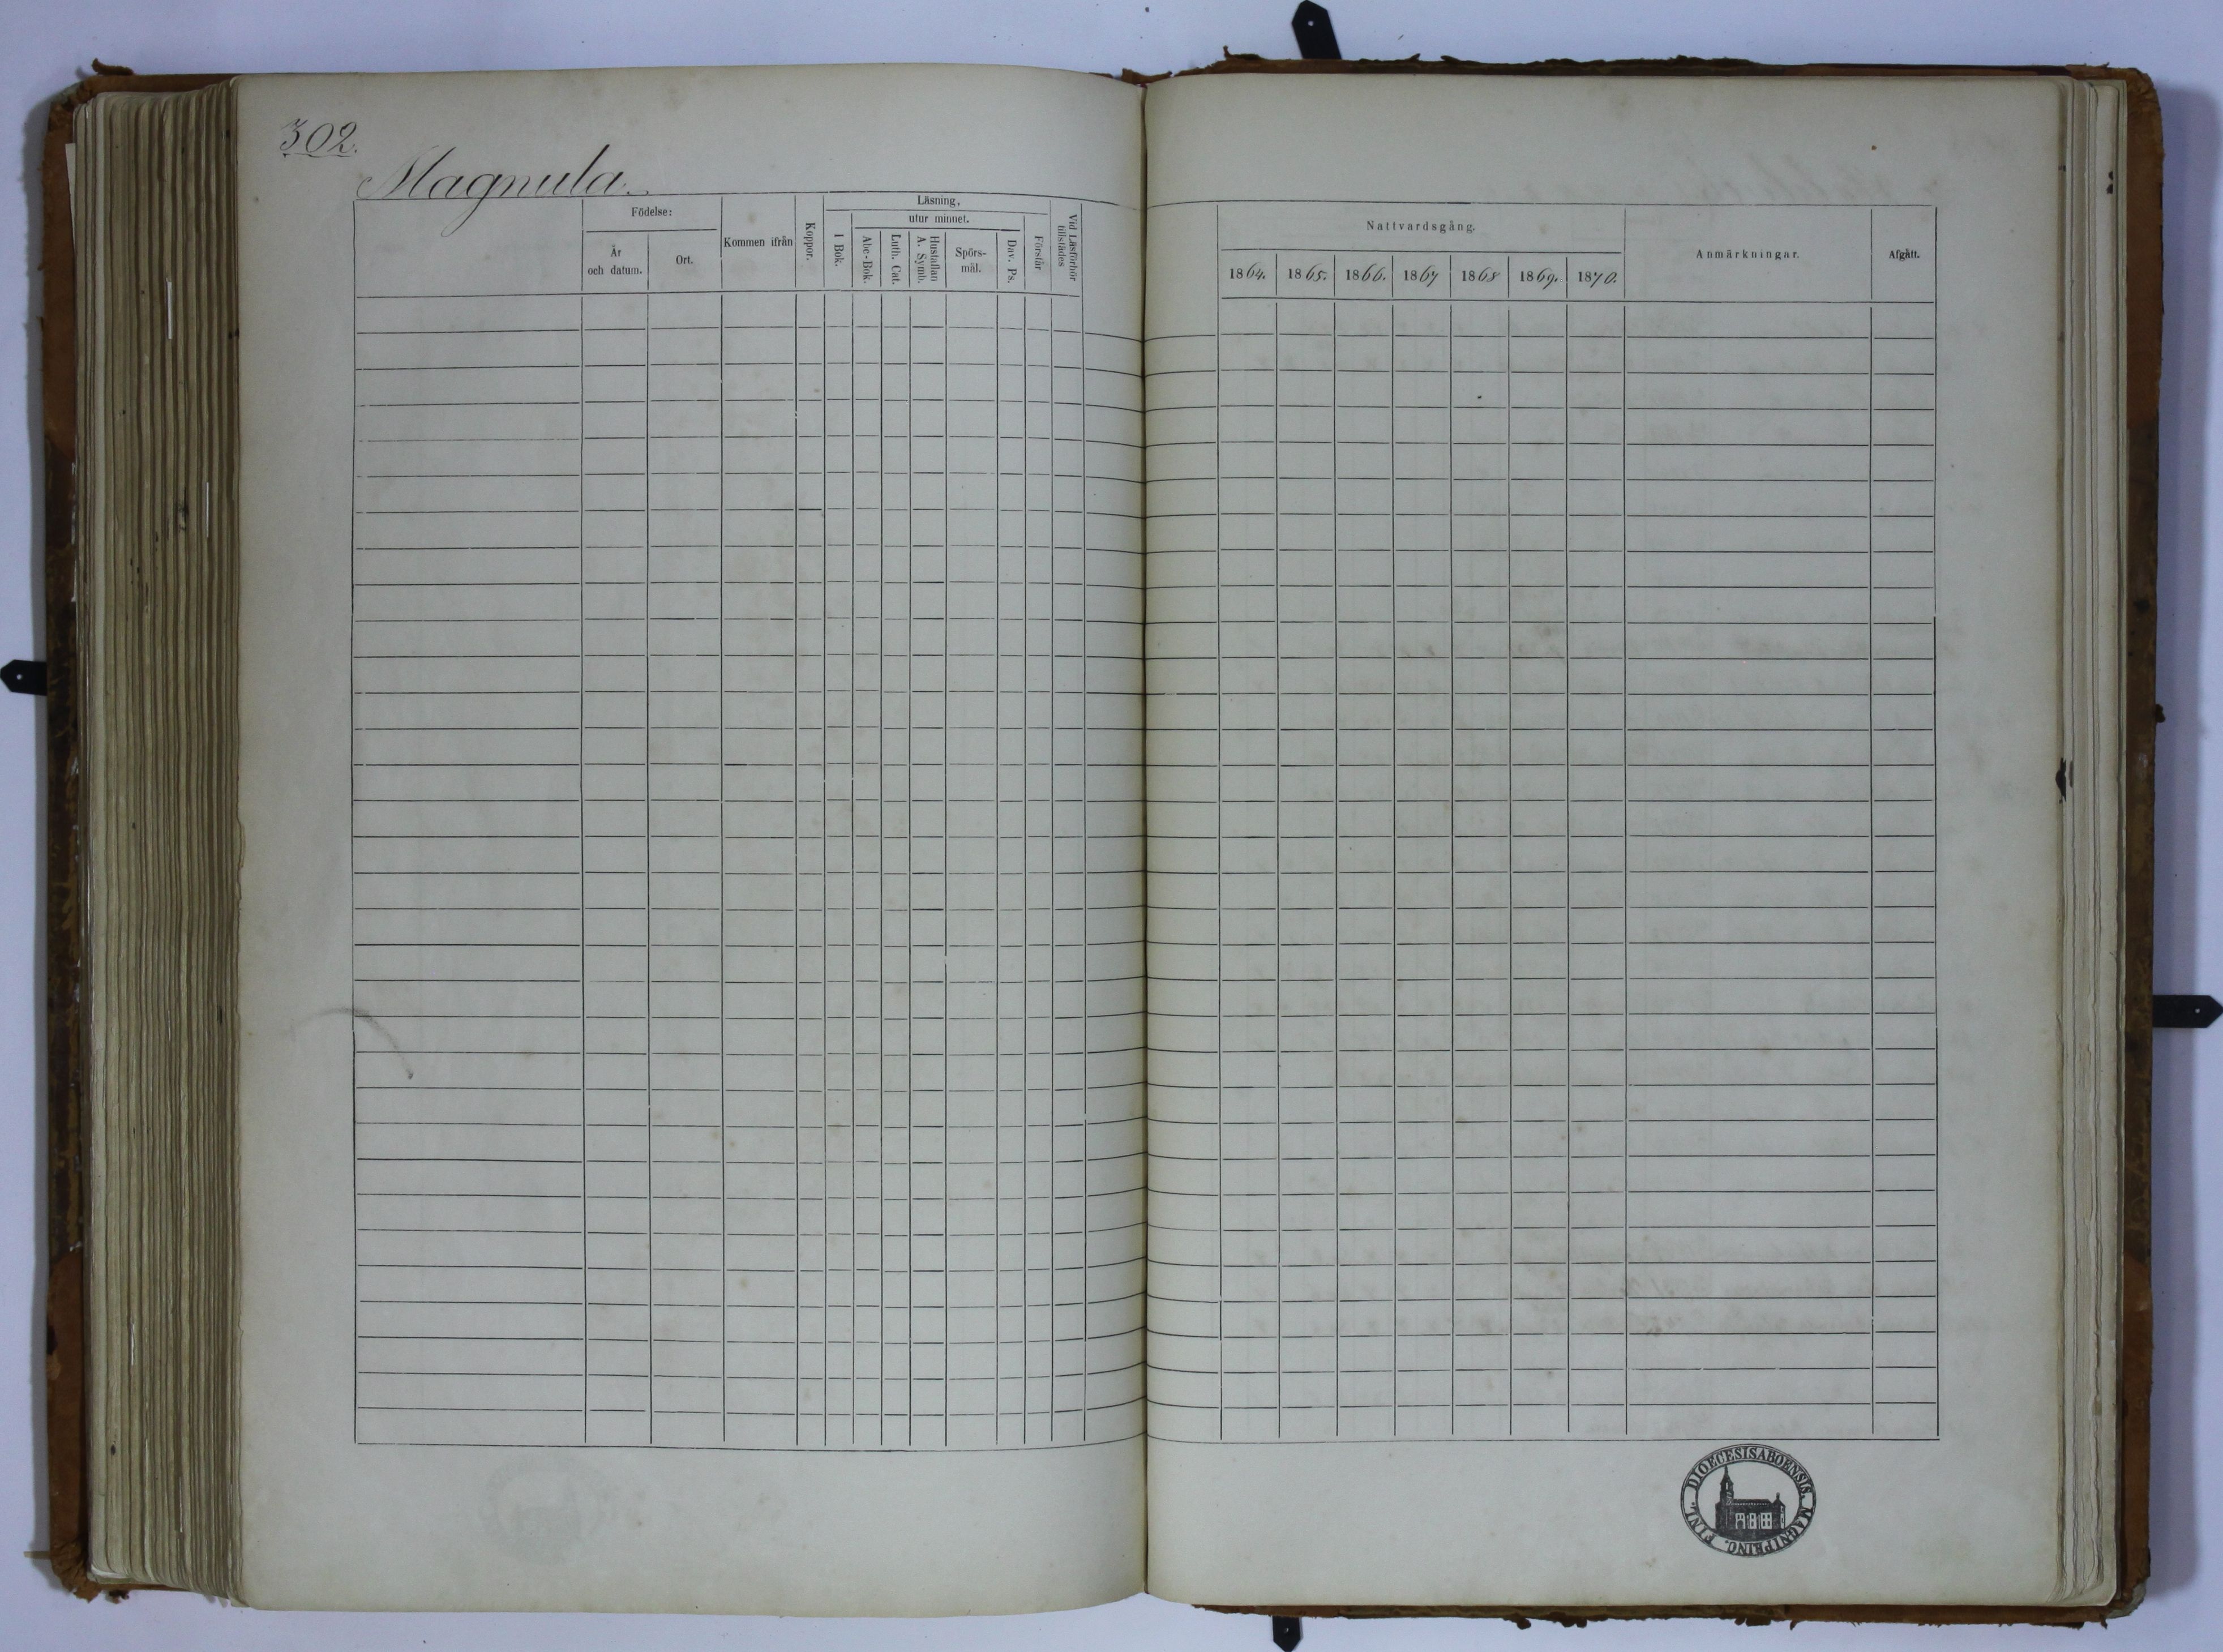 302.
Magnula.
Födelse:
År
och datum.
Ort.
Kommen ifrån
Koppor.
Läsning,
utur minnet.
I Bok.
Abc-Bok.
Luth. Cat.
Hustaflan
A. Symb.
Spörs-
mål.
Dav. Ps.
Förstår
Vid Läsförhör
tillstädes
Nattvardsgång.
1864. 1865. 1866. 1867 1868 1869. 1870.
Anmärkningar.
Afgått.
FINL. DIOECESISABOENSIS. MAGNIPRINC.